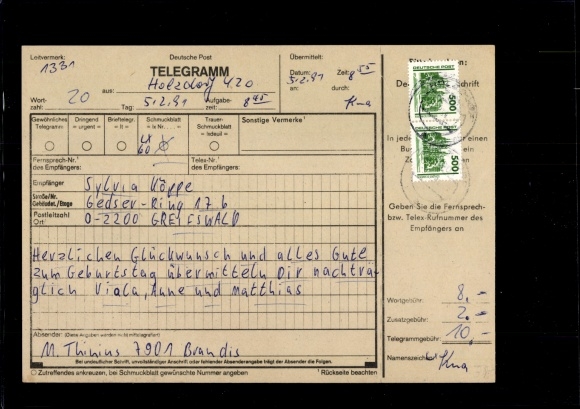 Leitvermerk: Deutsche Post Übermittelt:
1331 TELEGRAMM Datum: 5.2.91 Zeit: 8 55
aus: Holzdorf 420 an: durch:
Wort-zahl: 20 Tag: 5.2.91 Aufgabe-zeit: 8 45 Kna
Gewöhnliches Telegramm Dringend = urgent = Brieftelegr. = lt = Schmuckblatt = lx Nr.... = Trauer-Schmuckblatt = lxdeuil = Sonstige Vermerke¹
LX 60
Fernsprech-Nr.¹ des Empfängers: Telex-Nr.¹ des Empfängers:
Empfänger Sylvia Köppe
Straße/Nr. Gebäudet./Etage Gedser-Ring 17 b
Postleitzahl Ort O-2200 GREIFSWALD
Herzlichen Glückwunsch und alles Gute
zum Geburtstag übermitteln Dir nachträ-
glich Viola, Anne und Matthias
Absender: (Diese Angaben werden nicht mittelegrafiert)
M. Thinius 7901 Brandis
Bei undeutlicher Schrift, unvollständiger Anschrift oder fehlender Absenderangabe trägt der Absender die Folgen.
O Zutreffendes ankreuzen, bei Schmuckblatt gewünschte Nummer angeben ¹ Rückseite beachten
DEUTSCHE POST
500
DEUTSCHE POST
500
Schrift
In jede
einen
Geben Sie die Fernsprech-
bzw. Telex-Rufnummer des
Empfängers an
Wortgebühr: 8.-
Zusatzgebühr: 2.-
Telegrammgebühr: 10.-
Namenszeichen: Kna